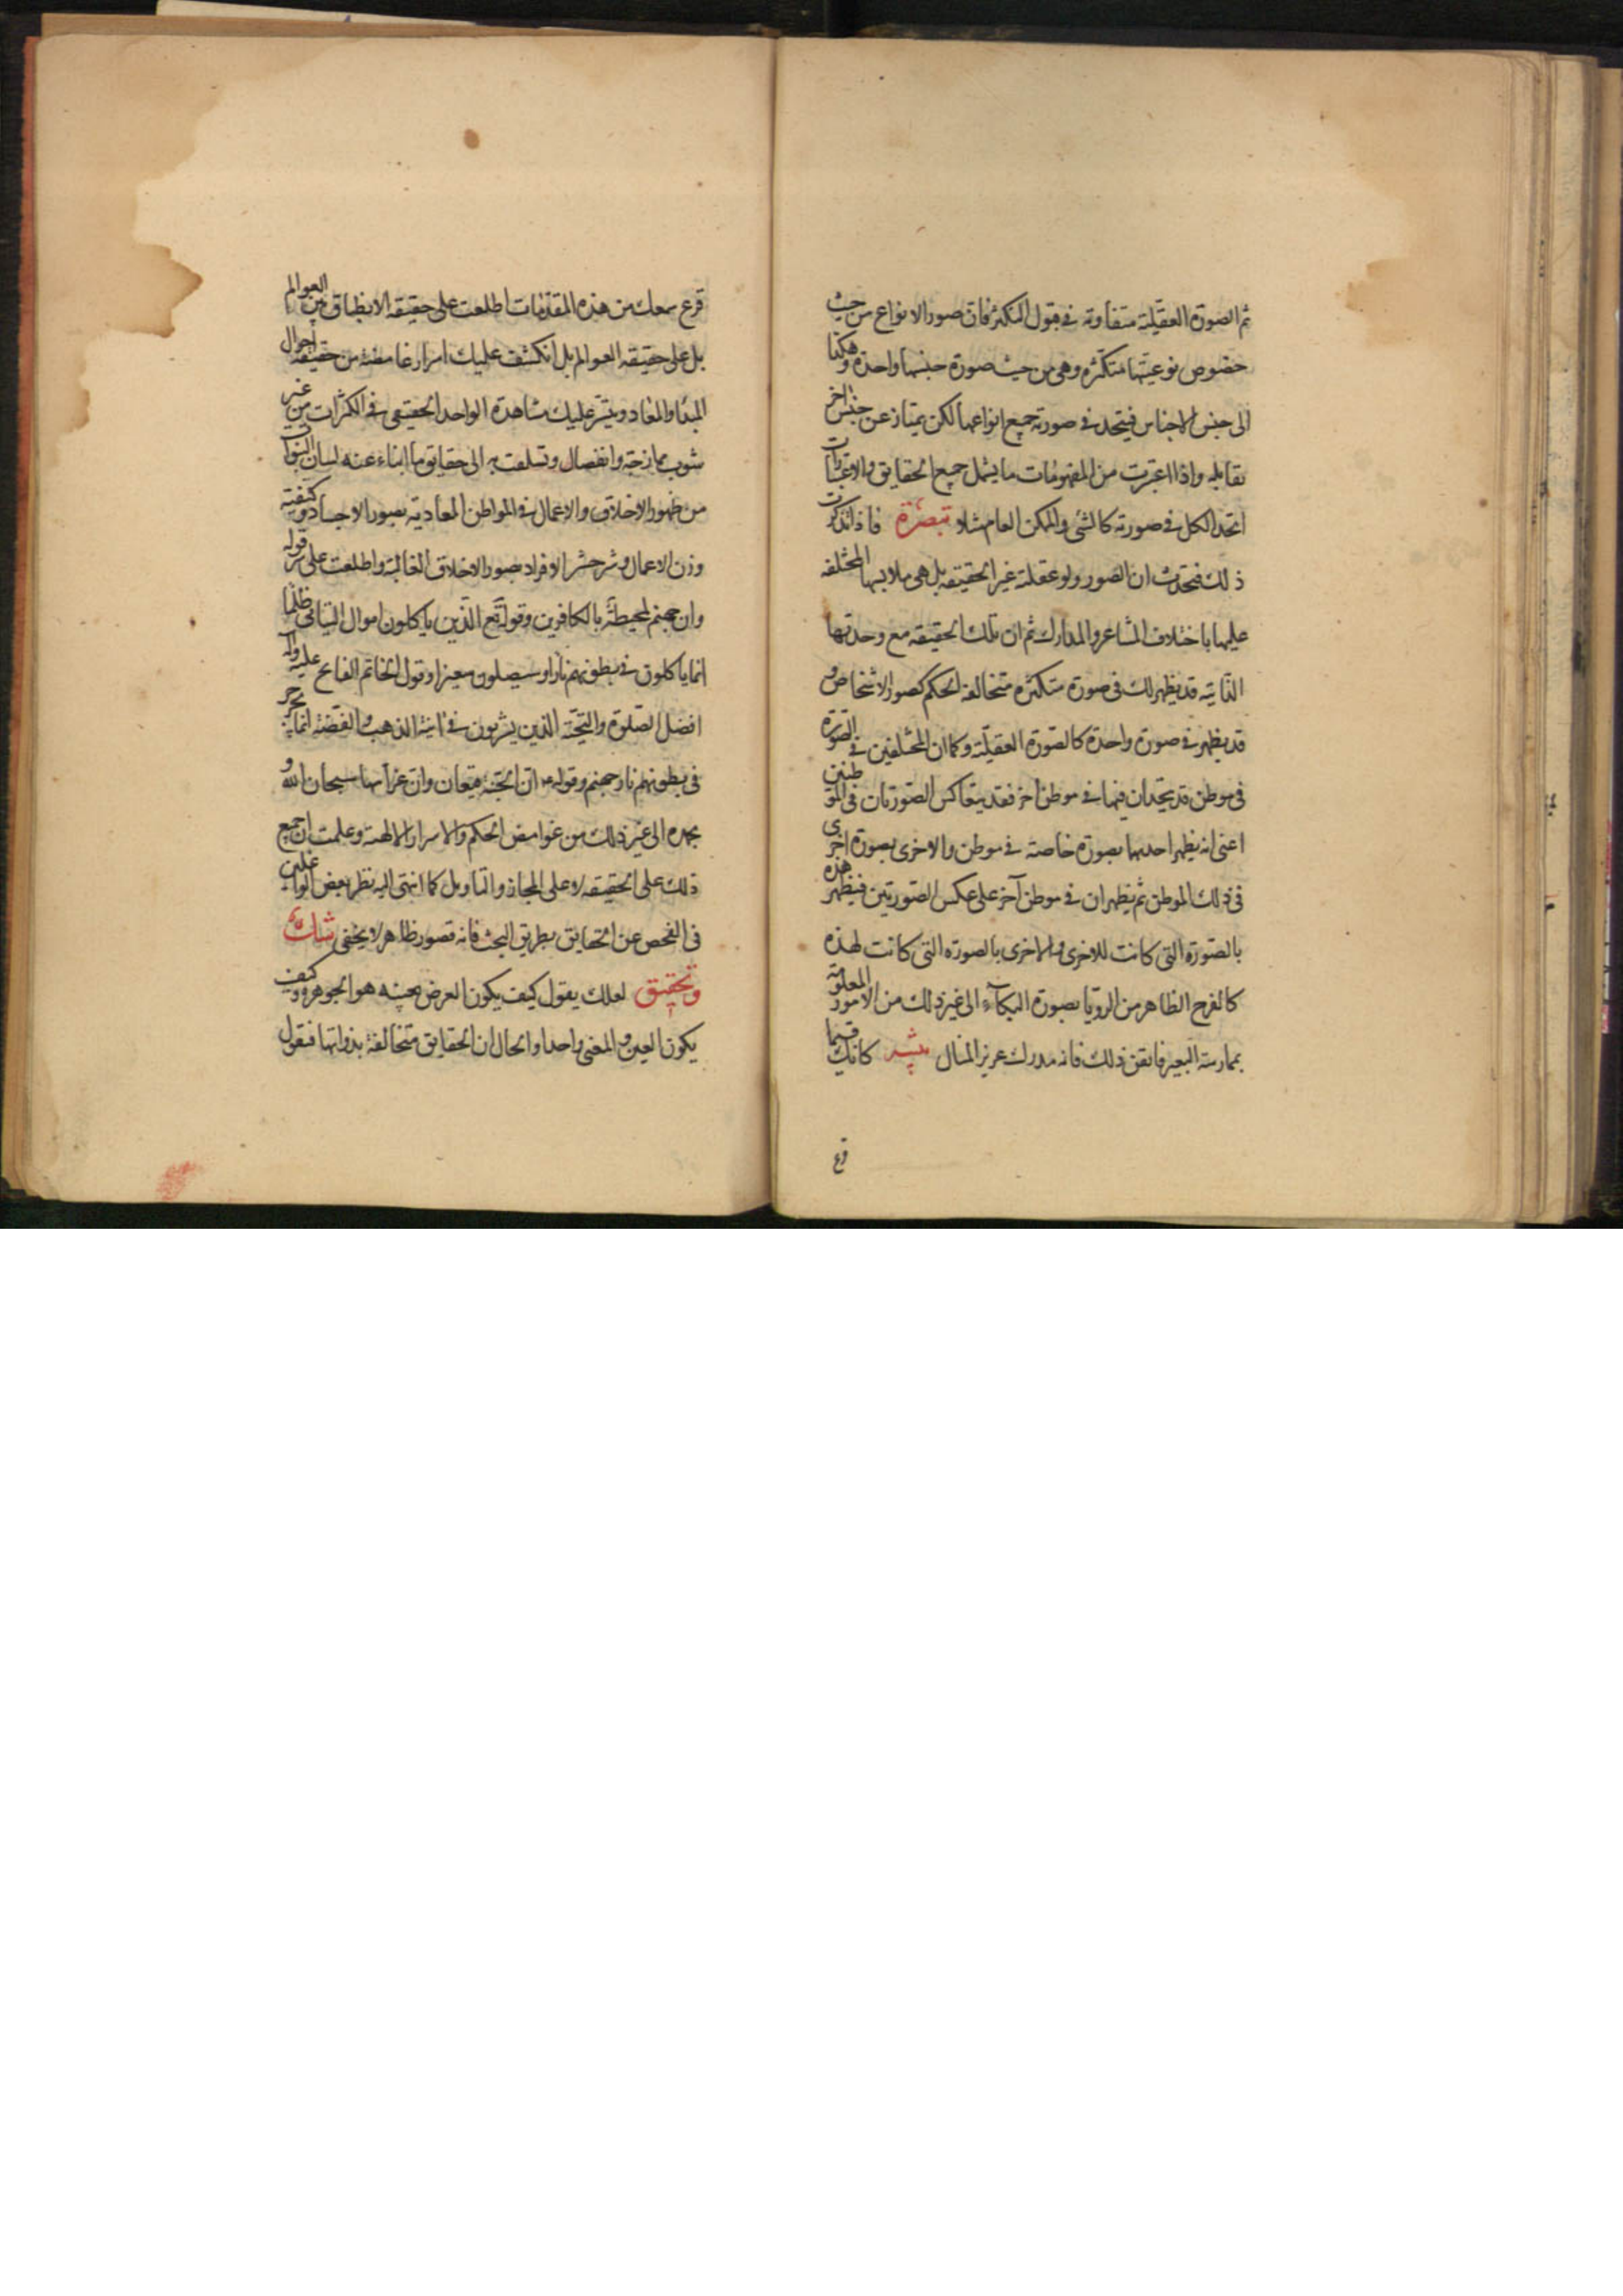 ثم الصورة العقلية متفاوتة في قبول التكثر فان صور الانواع من حيث
خصوص نوعيتها متكثرة وهي من حيث صورة جنسها واحدة وهكذا
الى جنس الاجناس فيتحد في صورته جميع انواعها لكن يمتاز عن جنس اخر
يقابله واذا اعتبرت من المفهومات ما يشمل جميع الحقايق والاعتبارات
اتحد الكل في صورته كالشئ والممكن العام مثلا تبصرة فاذا تذكرت
ذلك فتحدث ان الصور ولو عقلية غير الحقيقه بل هي ملابسها المختلفه
عليها باختلاف المشاعر والمدارك ثم ان تلك الحقيقه مع وحدتها
الذاتيه قد يظهر لك في صورة متكثره متخالفة الحكم كصور الاشخاص و
قد يظهر في صورة واحدة كالصورة العقليّة وكما ان المختلفين في الصورة
في موطن قد يتحدان فيها في موطن اخر فقد يتعاكس الصورتان في الموطنين
اعنى انه يظهر احديهما بصورة خاصة في موطن والاخرى بصورة اخرى
في ذلك الموطن ثم يظهران في موطن آخر على عكس الصورتين فيظهر هذه
بالصورة التى كانت للاخرى والاخرى بالصورة التى كانت لهذه
كالفرح الظاهر من الرويا بصورة البكآء الى غير ذلك من الامور المعلومة
بممارسة التعبير فاتقن ذلك فانه مدرك عزيز المنال كانك فيما
قرع
قرع سمعك من هذه المقدمات اطلعت على حقيقة الانطباق بين العوالم
بل على حقيقه العوالم بل انكشف عليك اسرار غامضة من حقيقة احوال
المبدا والمعاد وتيسر عليك مشاهدة الواحد الحقيقى في الكثرات من غير
شوب ممازجة وانفصال وتسلقت به الى حقايق ما انباء عنه لسان النبوات
من ظهور الاخلاق والاعمال في المواطن المعادية بصور الاجساد وكيفيته
وزن الاعمال وسر حشر الافراد بصور الاخلاق الغالبة واطلعت على سر قوله
وان جهنم لمحيطة بالكافرين وقوله تع الذين ياكلون اموال اليتامى ظلما
انما ياكلون في بطونهم نارا وسيصلون سعيرا وقول الخاتم الفاتح عليه وآله
افضل الصلوة والتحية الذين يشربون في انية الذهب والفضة انما يجرجر
في بطونهم نار جهنم وقوله ان الجنة قيعان وان غراسها سبحان الله و
بحمده الى غير ذلك من غوامض الحكم والاسرار الالهية وعلمت ان جميع
ذلك على الحقيقه لا على المجاز والتاويل كما انتهى اليه نظر بعض الواغلين
في الفحص عن الحقايق بطريق البحث فانه قصور ظاهر لا يخفى شك
وتحقيق لعلك يقول كيف يكون العرض بعينه هو الجوهر وكيف
يكون العين والمعنى واحدا والحال ان الحقايق متخالفة بذواتها فنقول